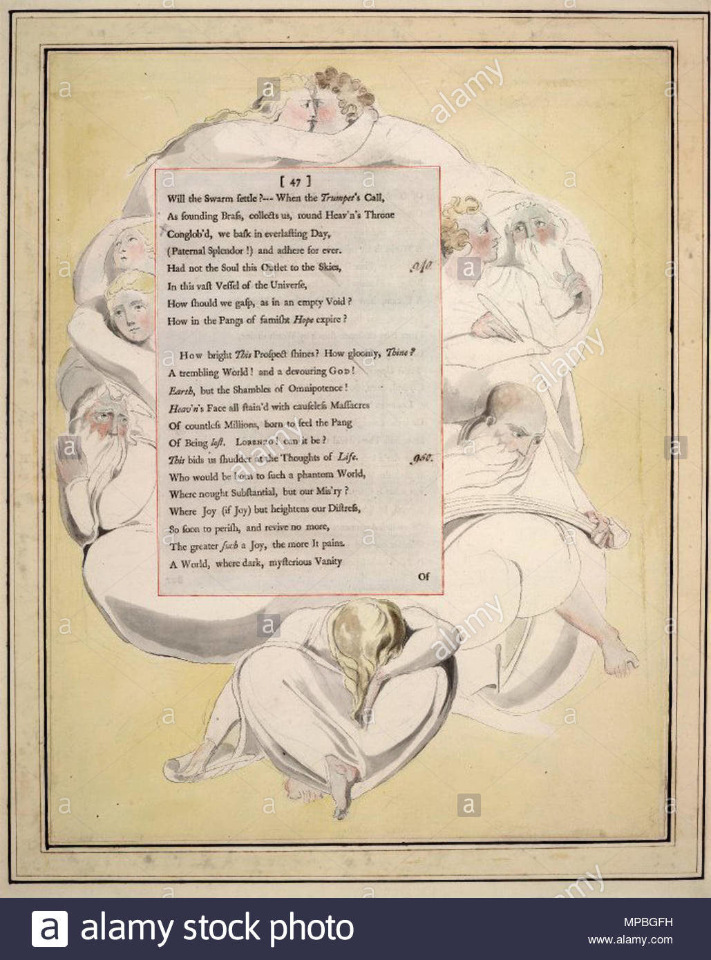 [ 47 ]
Will the Swarm ſettle ?--- When the Trumpet's Call,
As ſounding Braſs, collects us, round Heav'n's Throne
Conglob'd, we baſk in everlaſting Day,
(Paternal Splendor !) and adhere for ever.
Had not the Soul this Outlet to the Skies,
In this vaſt Veſſel of the Univerſe,
How ſhould we gaſp, as in an empty Void ?
How in the Pangs of famiſht Hope expire ?
How bright This Proſpect ſhines ? How gloomy, Thine ?
A trembling World ! and a devouring GOD !
Earth, but the Shambles of Omnipotence !
Heav'n's Face all ſtain'd with cauſeleſs Maſſacres
Of countleſs Millions, born to feel the Pang
Of Being loſt. LORENZO ! can it be ?
This bids us ſhudder at the Thoughts of Life.
Who would be born to ſuch a phantom World,
Where nought Subſtantial, but our Miſ'ry ?
Where Joy (if Joy) but heightens our Diſtreſs,
So ſoon to periſh, and revive no more,
The greater ſuch a Joy, the more It pains.
A World, where dark, myſterious Vanity
Of
alamy
alamy
alamy
alamy
alamy
a alamy stock photo
MPBGFH
www.alamy.com